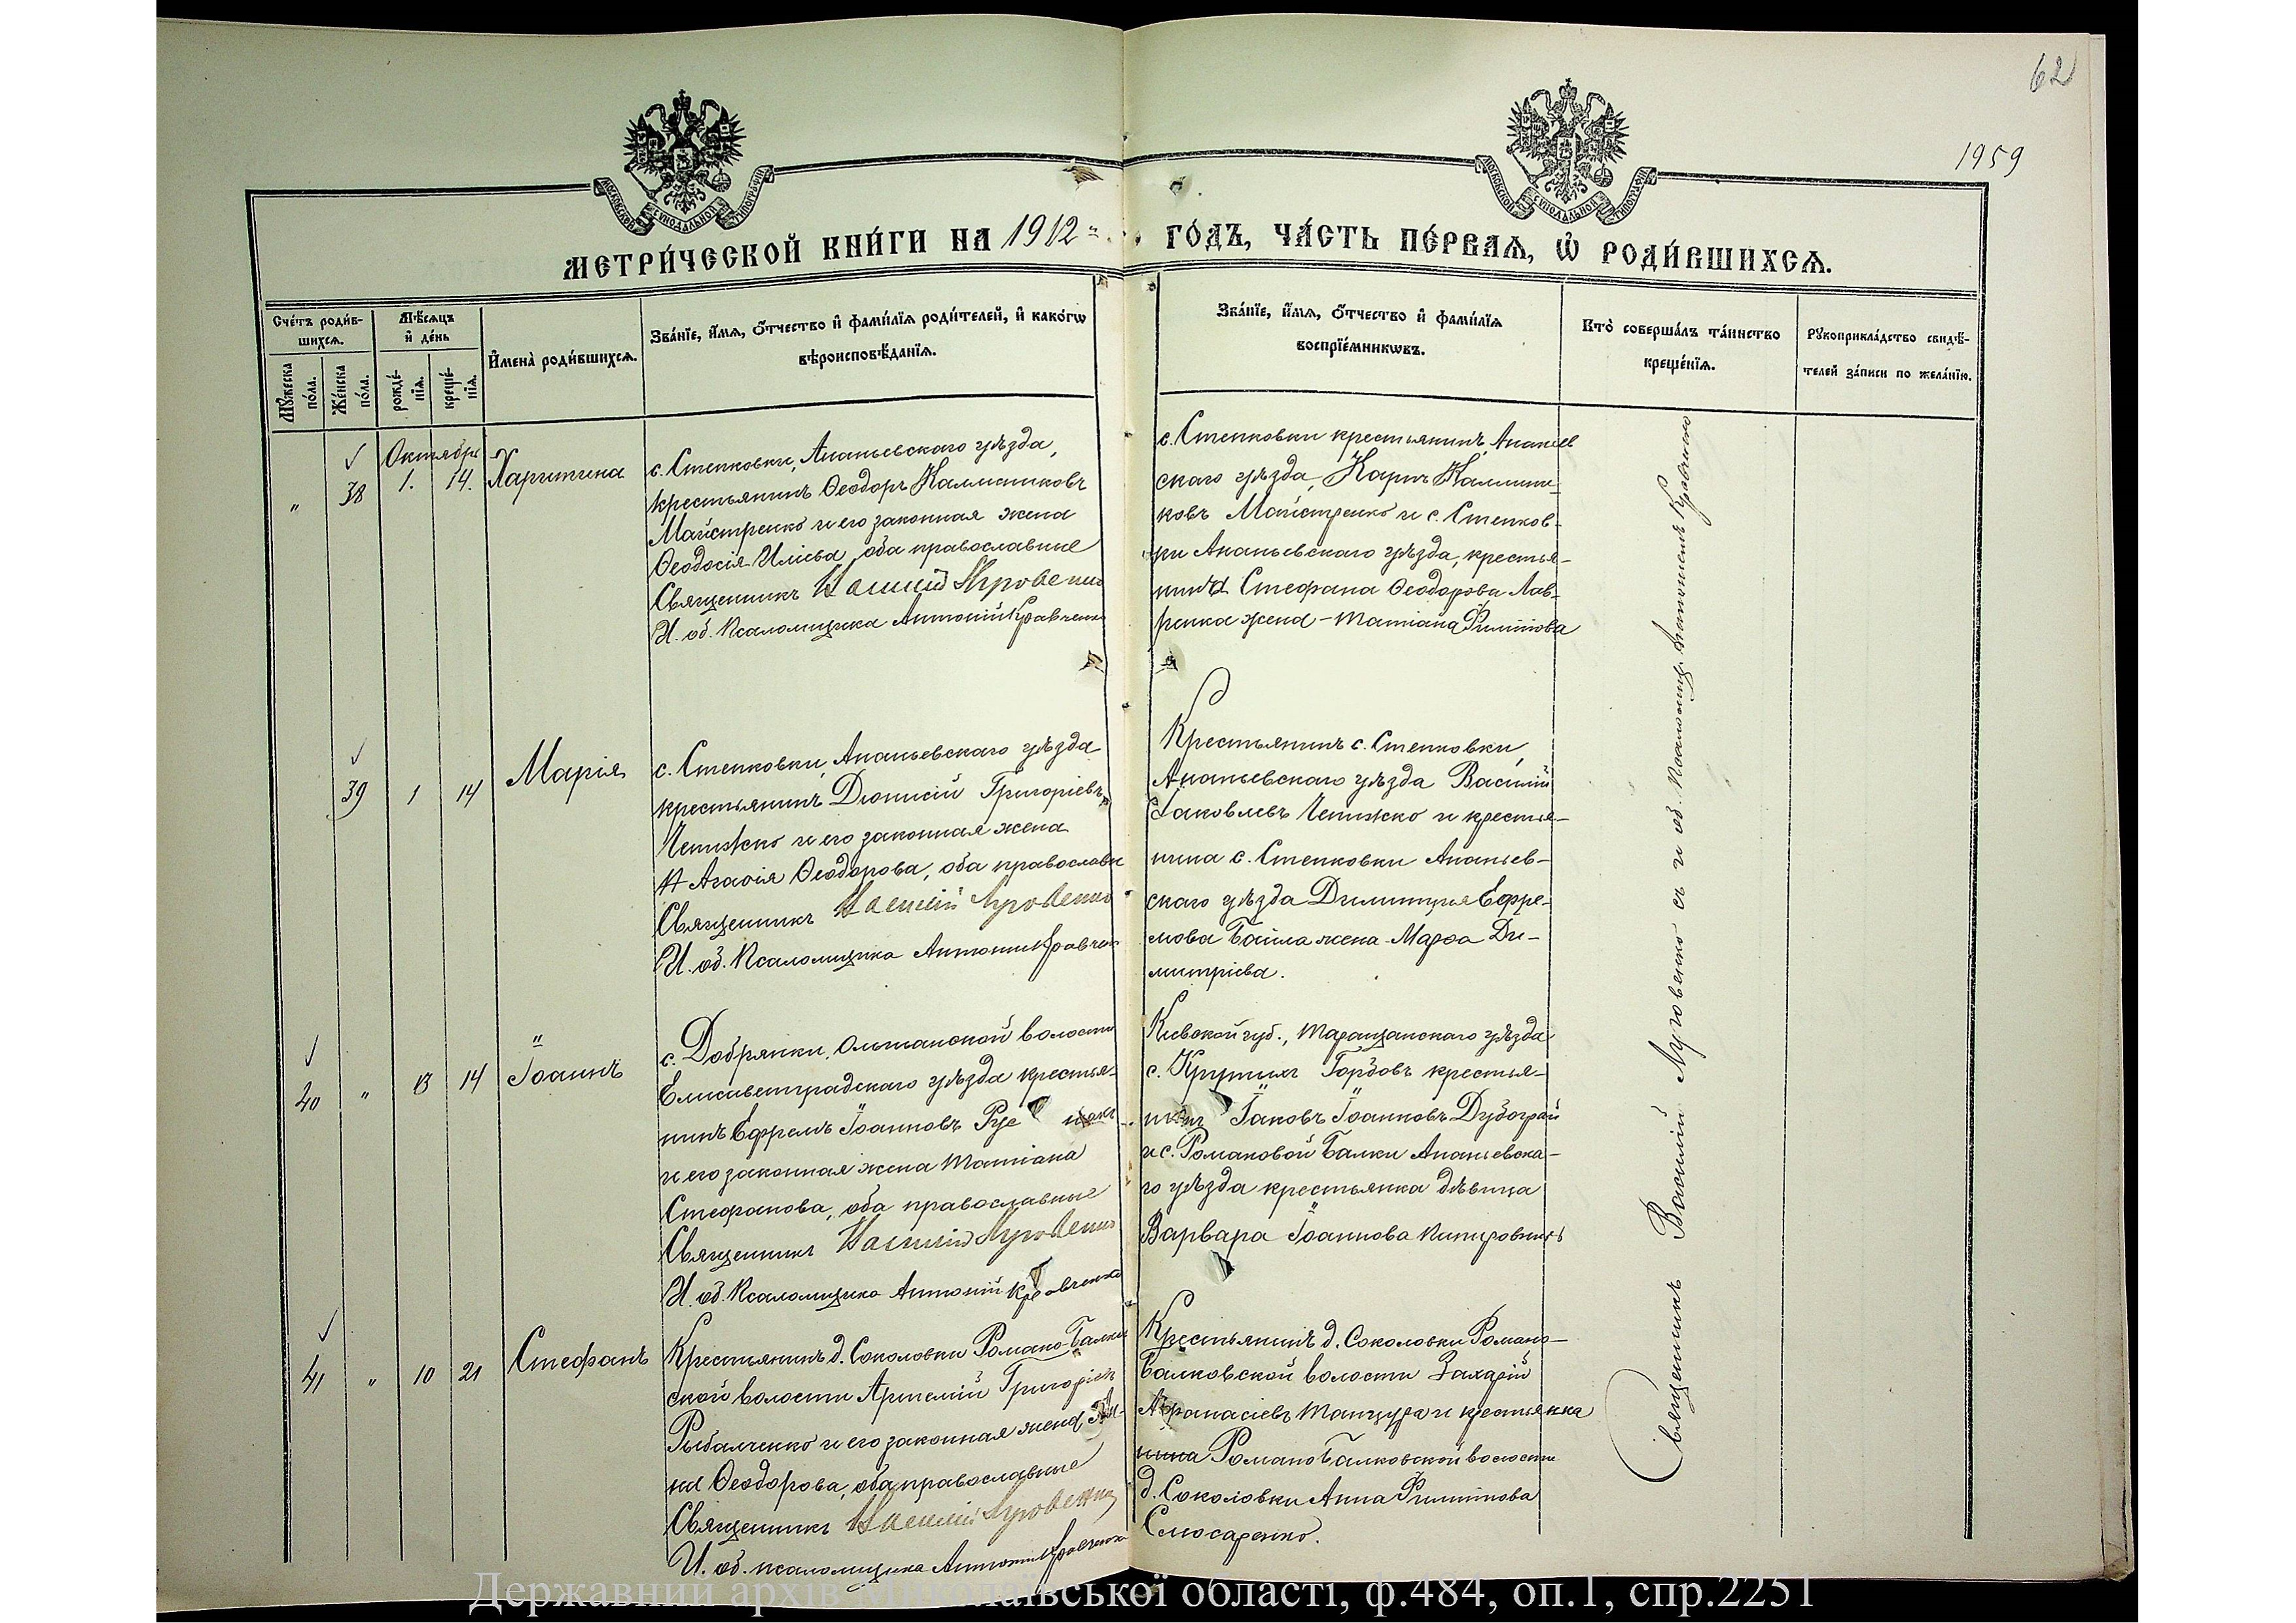 62
1959
МОСКОВСКОЙ СѴНОДАЛЬНОЙ ТИПОГРАФІИ
МОСКОВСКОЙ СѴНОДАЛЬНОЙ ТИПОГРАФІИ
МЕТРИ́ЧЕСКОЙ КНИ́ГИ НА 1912 ГО́ДЪ, ЧА́СТЬ ПЕ́РВАѦ, Ѡ҆ РОДИ́ВШИХСѦ.
Сче́тъ роди́в-
шихсѧ.
Мꙋ́жеска
по́ла.
Же́нска
по́ла.
Мѣ́сѧцъ
и҆ де́нь
рожде́-
нїѧ.
креще́-
нїѧ.
И҆мена̀ роди́вшихсѧ.
Зва́нїе, и҆́мѧ, ѻ҆́тчество и҆ фами́лїѧ роди́телей, и҆ како́гѡ
вѣроисповѣ́данїѧ.
Зва́нїе, и҆́мѧ, ѻ҆́тчество и҆ фами́лїѧ
воспрїе́мникѡвъ.
Кто̀ соверша́лъ та́инство
креще́нїѧ.
Рꙋкоприкла́дство свидѣ́-
телей за́писи по жела́нїю.
Октябрь
" 38 1. 14. Харитина
с. Степковки, Ананьевскаго уѣзда,
крестьянинъ Ѳеодоръ Каллиниковъ
Майстренко и его законная жена
Ѳеодосія Иліева, оба православные
Священникъ Василий
И. об. Псаломщика Антоній Кравченко
с. Степковки крестьянинъ, Ананьев
скаго уѣзда, Карпъ Каллини-
ковъ Майстренко и с. Степков-
ки Ананьевскаго уѣзда, крестья-
нина Стефана Ѳеодорова Лав-
ренка жена - Татіана Филиппова
39 1 14 Марія
с. Степковки, Ананьевскаго уѣзда
крестьянинъ Діонисій Григоріевъ
Чепижко и его законная жена
Агаѳія Ѳеодорова, оба православн
Священникъ Василій
И. об. Псаломщика Антоній Кравчен
Крестьянинъ с. Степковки,
Ананьевскаго уѣзда Василій
Іаковлевъ Чепижко и крестья-
нина с. Степковки Ананьев-
скаго уѣзда Димитрія Ефре-
мова Байла жена - Марѳа Ди-
митріева.
40 " 13 14 Іоаннъ
с. Добрянки, Ольшанской волости
Елисаветградскаго уѣзда крестья-
нинъ Ефремъ Іоанновъ
и его законная жена Татіана
Стефанова, оба православные
Священникъ Василій
И. об. Псаломщика Антоній Кравченко
Кіевской губ., Таращанскаго уѣзда
с. Крутыхъ Горбовъ крестья-
нинъ Іаковъ Іоанновъ Дубограй
и с. Романовой Балки Ананьевска-
го уѣзда крестьянка дѣвица
Варвара Іоаннова
41 " 10 21 Стефанъ
Крестьянинъ д. Соколовки Романо-Балков
ской волости Артемій Григоріев
Рыбалченко и его законная жена
на Ѳеодорова, оба православные
Священникъ Василій
И. об. псаломщика Антоній Кравченко
Крестьянинъ д. Соколовки Романо-
Балковской волости Захарій
Аѳанасіевъ Танцура и крестьянка
Романо Балковской волости
д. Соколовки Анна Филиппова
Слюсаренко.
Священникъ Василій Луговенко съ и об. Псаломщ. Антоніемъ Кравченко
Державний архів Миколаївської області, ф.484, оп.1, спр.2251